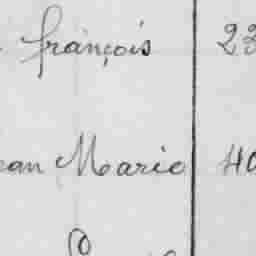 françois 23
ean Marie 40